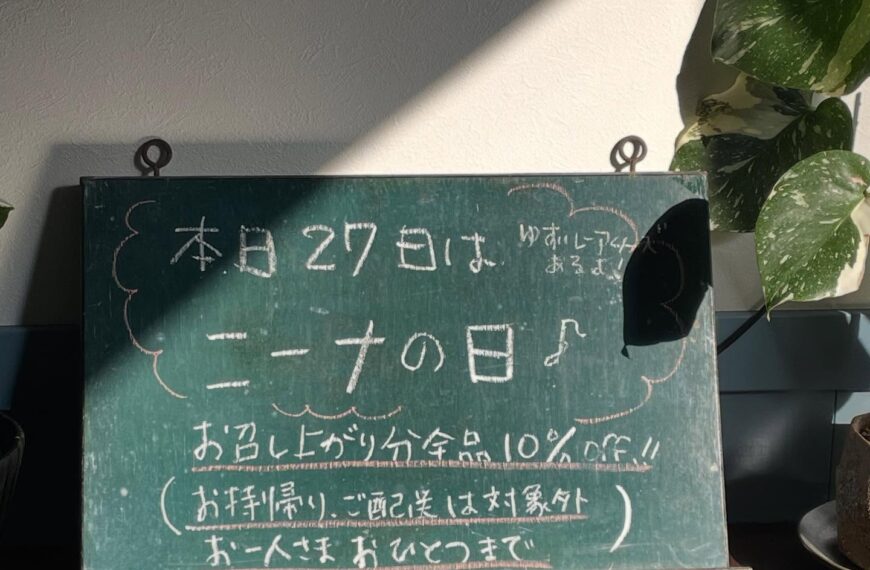 本日27日は
ゆずレアチーズ
あるよ
ニーナの日♪
お召し上がり分全品10%OFF!!
(お持帰り、ご配送は対象外
お一人さまおひとつまで)